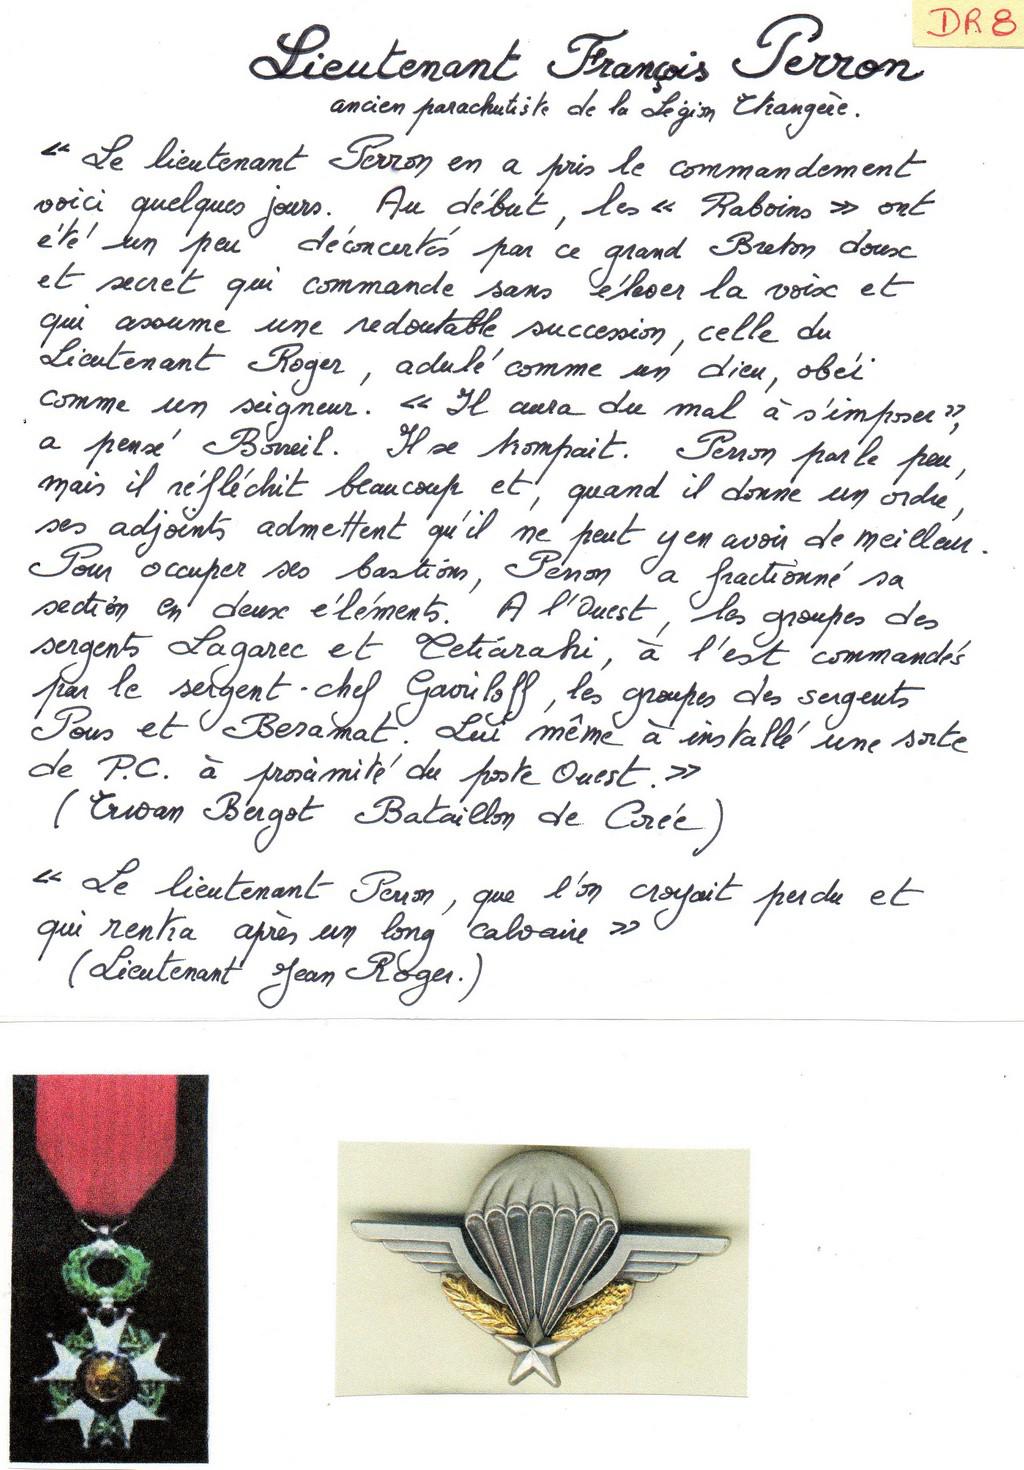 DR 8
Lieutenant François Perron
ancien parachutiste de la Légion Etrangère.
« Le lieutenant Perron en a pris le commandement
voici quelques jours. Au début, les « Raboins » ont
été un peu déconcertés par ce grand Breton doux
et secret qui commande sans élever la voix et
qui assume une redoutable succession, celle du
Lieutenant Roger, adulé comme un dieu, obéi
comme un seigneur. « Il aura du mal à s'imposer »,
a pensé Borreil. Il se trompait. Perron parle peu,
mais il réfléchit beaucoup et, quand il donne un ordre,
ses adjoints admettent qu'il ne peut y en avoir de meilleur.
Pour occuper ses bastions, Perron a fractionné sa
section en deux éléments. A l'Ouest, les groupes des
sergents Lagarec et Tetiarahi, à l'est commandés
par le sergent-chef Gavriloff, les groupes des sergents
Pous et Beramat. Lui même à installé une sorte
de P.C. à proximité du poste Ouest. »
(Erwan Bergot Bataillon de Corée)
« Le lieutenant Perron, que l'on croyait perdu et
qui rentra après un long calvaire »
(Lieutenant Jean Roger.)